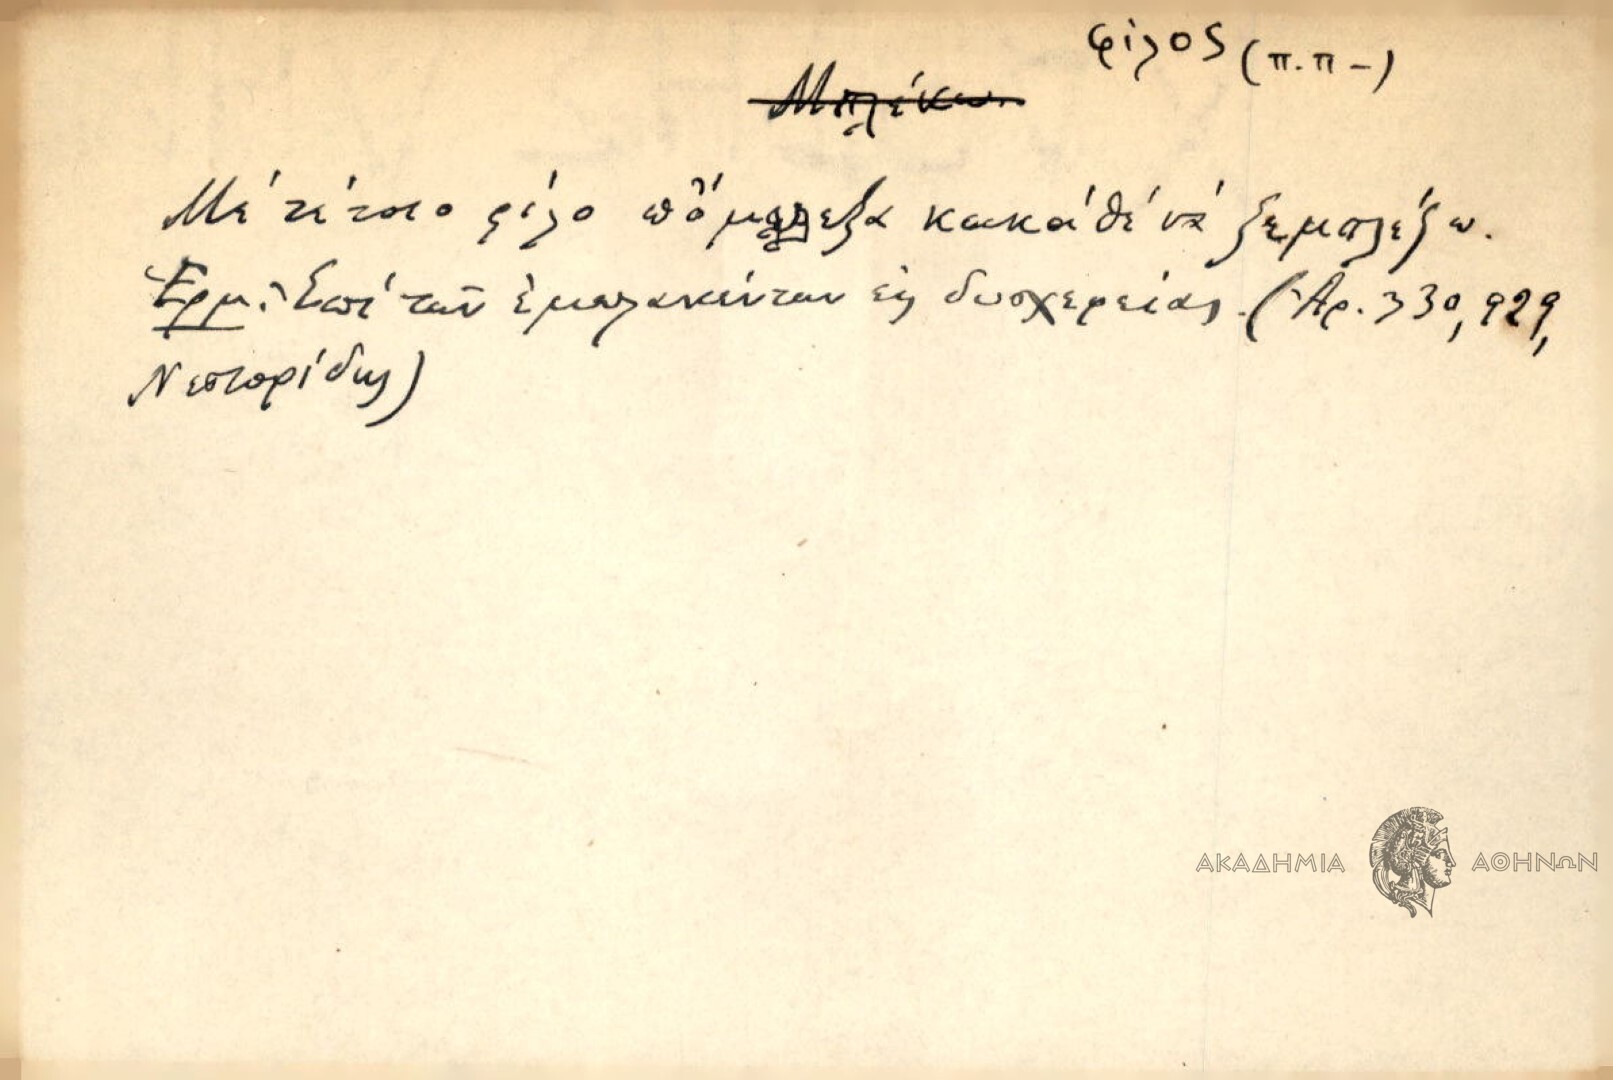 φίλος (π.π-)
Μπλέκω
Μέ τέτοιο φίλο πὄμπλεξα κακά θέ νά ξεμπλέξω.
Ἑρμ: Ἐπί τῶν ἐμπλακέντων εἰς δυσχερείας. (Ἀρ. 330, 929,
Νεστορίδης)
ΑΚΑΔΗΜΙΑ ΑΘΗΝΩΝ